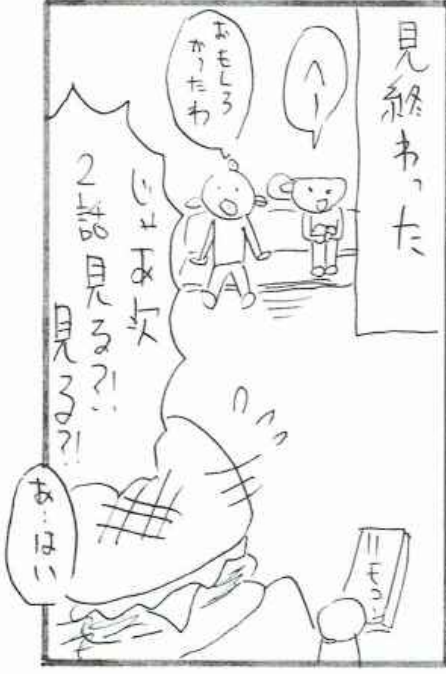 見終わった
へー
おもしろ
かったわ
じゃあ次
2話見る?!
見る?!
リモコン
あ…はい